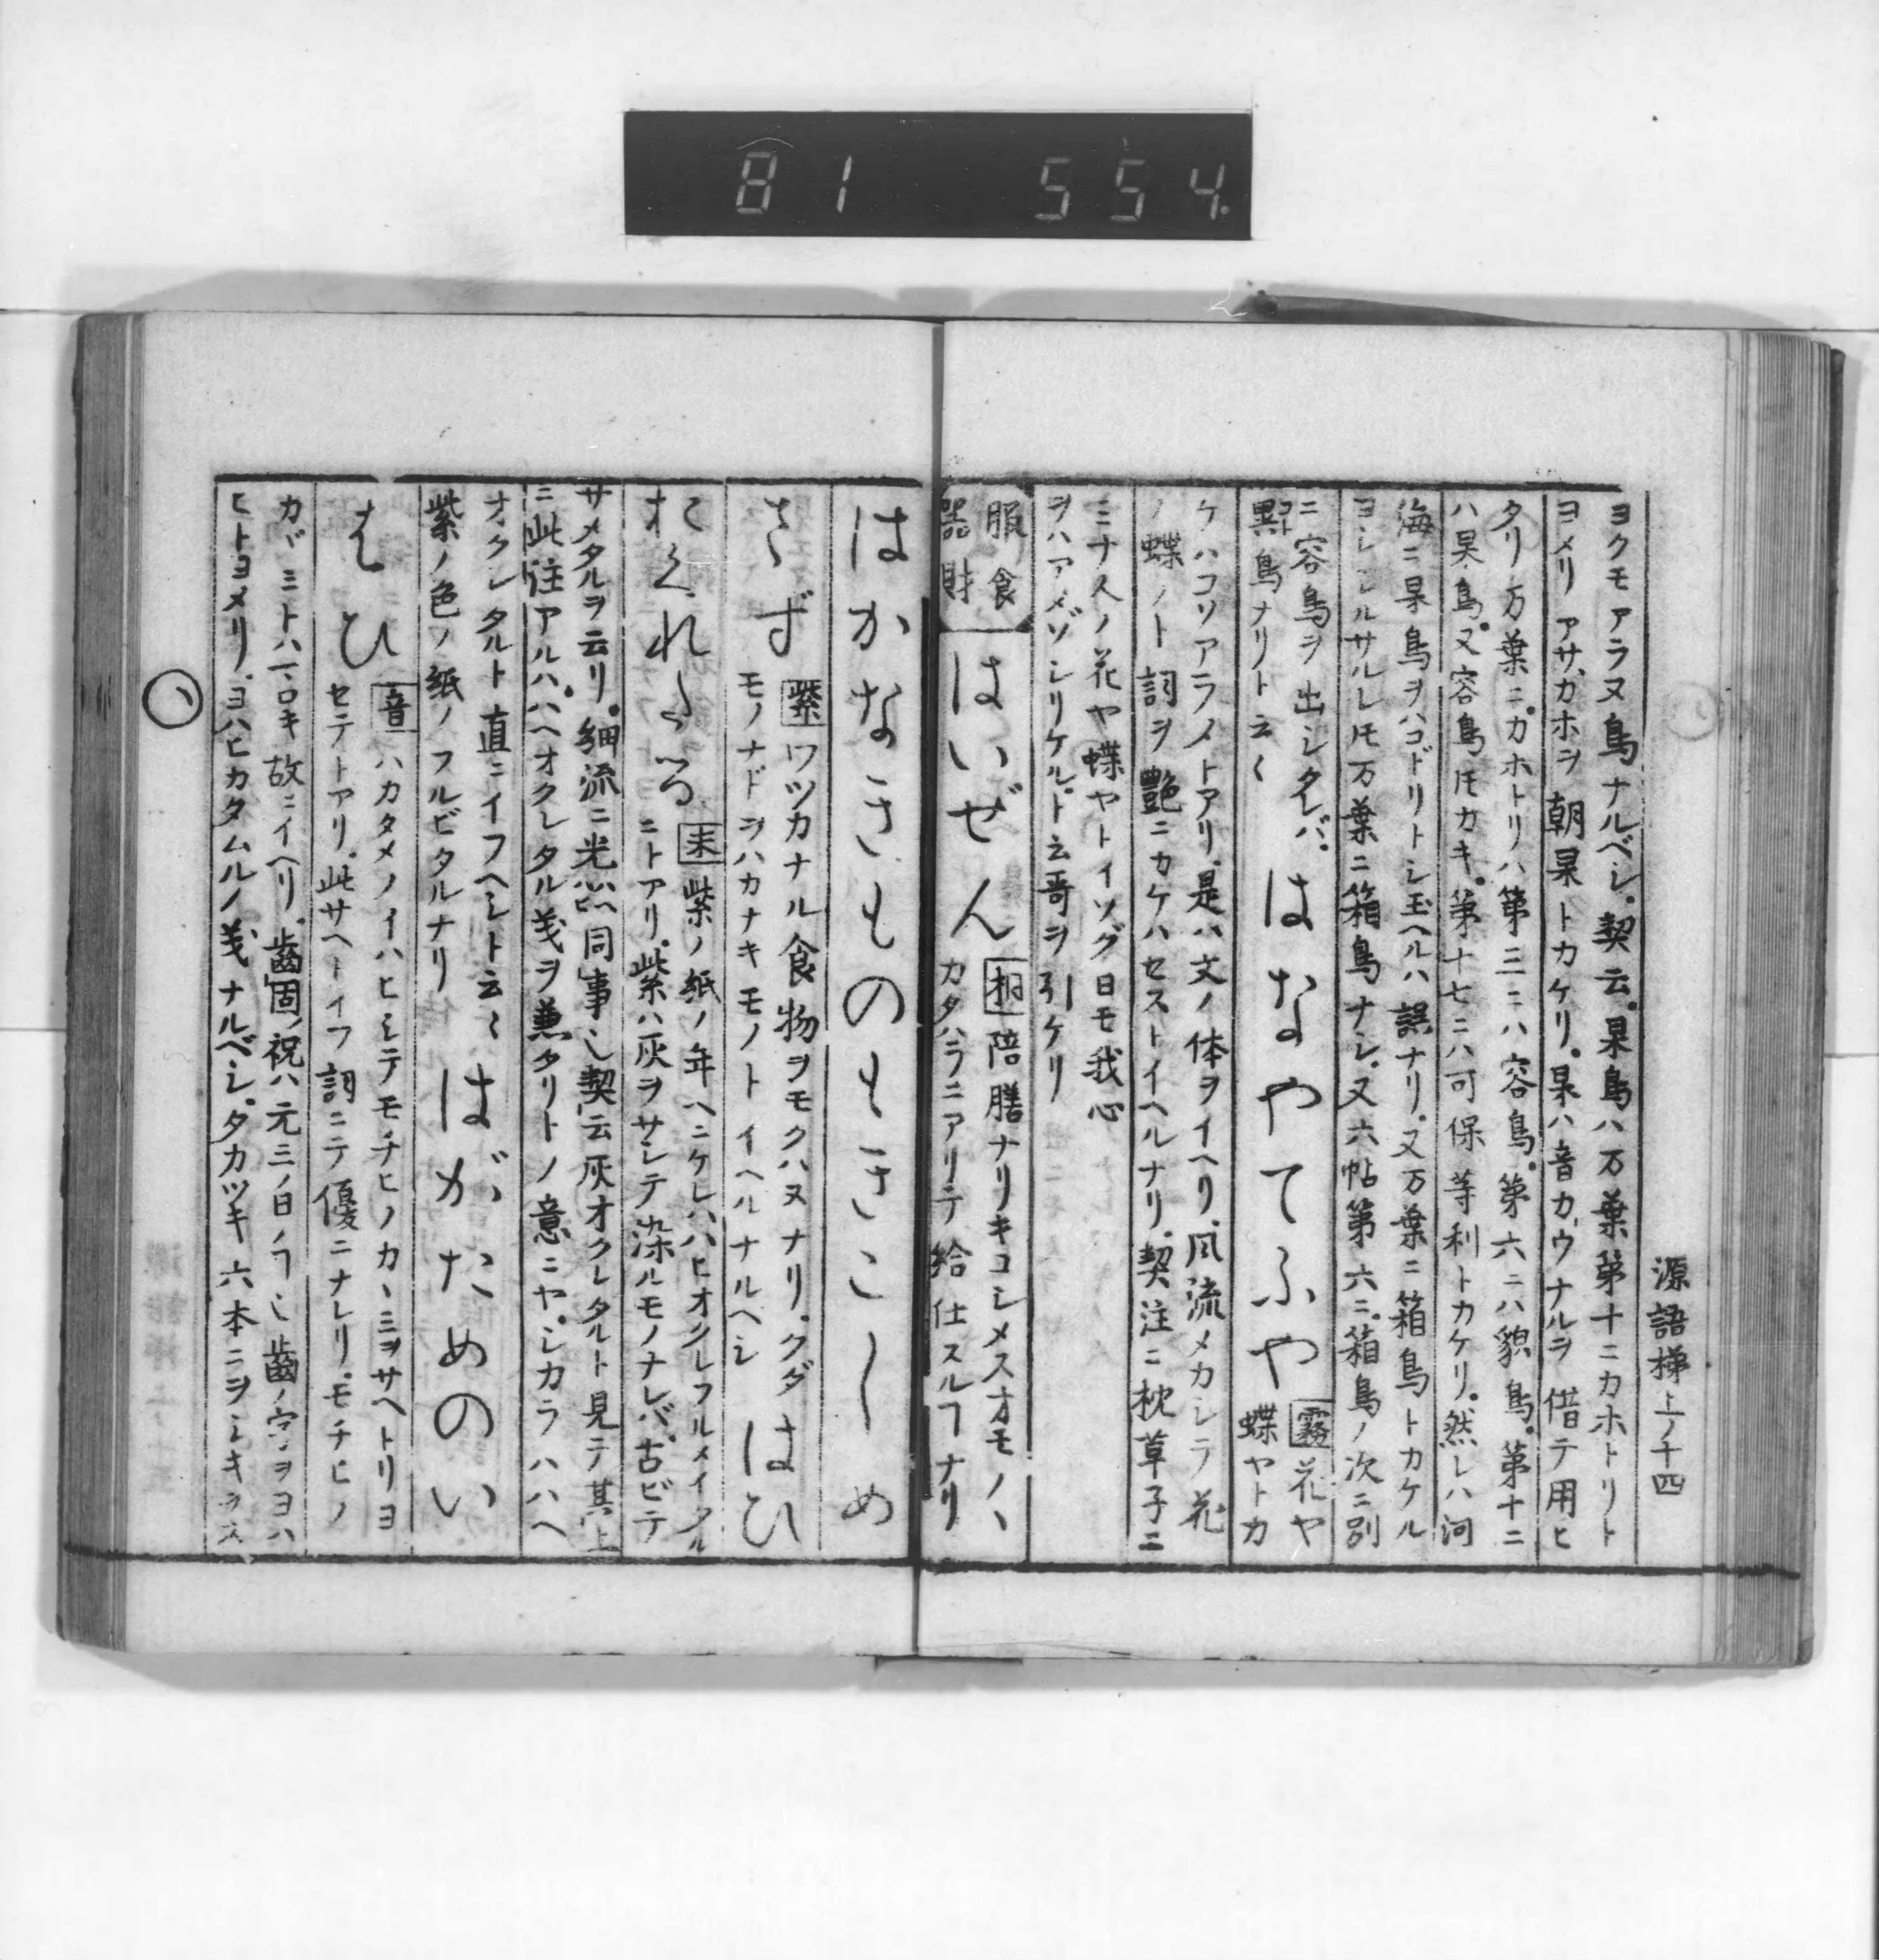 81 554
源語梯上ノ十四
ヨクモアラヌ鳥ナルベシ。契云。杲鳥ハ万葉第十ニカホトリト
ヨメリアサカホヲ朝杲トカケリ。杲ハ音カウナルヲ借テ用ヒ
タリ万葉ニカホトリハ第三ニハ容鳥。第六ニハ貌鳥。第十ニ
ハ杲鳥。又容鳥トモカキ。第十七ニハ可保等利トカケリ。然レハ河
海ニ杲鳥ヲハコドリトシ玉ヘルハ誤ナリ。又万葉ニ箱鳥トカケル
ヨシシルサルレトモ万葉ニ箱鳥ナシ。又六帖第六ニ。箱鳥ノ次ニ別
ニ容鳥ヲ出シタレバ、
異鳥ナリト云〱
はなやてふや
霧花ヤ
蝶ヤトカ
ケハコソアラメトアリ。是ハ文ノ体ヲイヘリ。風流メカシラ花
ノ蝶ノト詞ヲ艶ニカケハセストイヘルナリ。契注ニ枕草子ニ
ミナ人ノ花ヤ蝶ヤトイソグ日モ我心
ヲハアメゾシリケル。ト云哥ヲ引ケリ
服食
器財
はいぜん
桐陪膳ナリキコシメスオモノハ
カタハラニアリテ給仕スルヿナリ
はかなきものもきこしめ
さず
紫ワツカナル食物ヲモクハヌナリ。クダ
モノナドヲハカナキモノトイヘルナルヘシ
はひ
おくれたる
末紫ノ紙ノ年ヘニケレハハヒオクレフルメイタル
ニトアリ。紫ハ灰ヲサシテ染ルモノナレバ。古ビテ
サメタルヲ云リ。細流ニ光ハ同事也契云灰オクレタルト見テ其上
ニ此注アルハ。ハヘオクレタル義ヲ兼タリトノ意ニヤ。シカラハハヘ
オクレタルト直ニイフヘシト云〻
紫ノ色ノ紙ノフルビタルナリ
はがためのい
はひ
音ハカタメノイハヒシテモチヒノカヽミヲサヘトリヨ
セテトアリ。此サヘトイフ詞ニテ優ニナレリ。モチヒノ
カヾミトハ丸キ故ニイヘリ。歯固ノ祝ハ元三ノ日ノヿ也歯ノ字ヲヨハ
ヒトヨメリ。ヨハヒカタムルノ義ナルベシ。タカツキ六本ニヲシキ
ハ